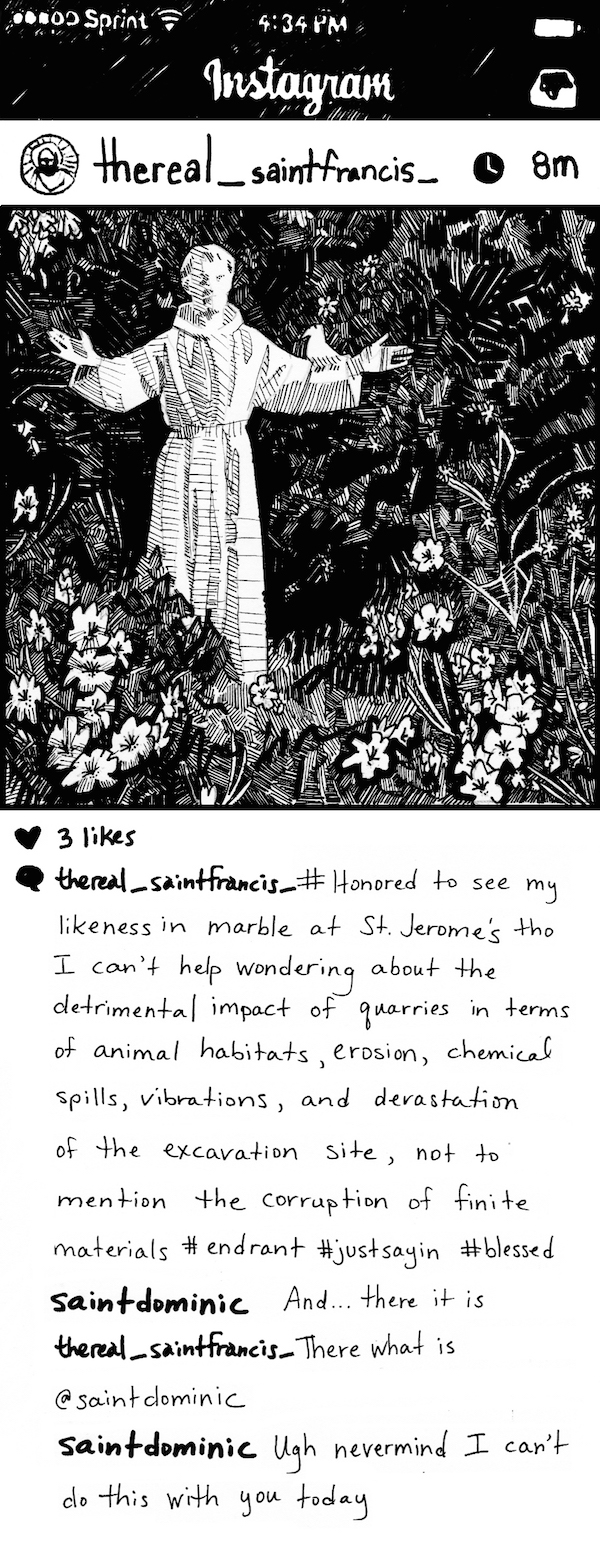 Sprint 4:34 PM
Instagram
thereal_saintfrancis_ 8m
3 likes
thereal_saintfrancis_ # Honored to see my
likeness in marble at St. Jerome's tho
I can't help wondering about the
detrimental impact of quarries in terms
of animal habitats, erosion, chemical
spills, vibrations, and devastation
of the excavation site, not to
mention the corruption of finite
materials #endrant #justsayin #blessed
saintdominic And... there it is
thereal_saintfrancis_ There what is
@saintdominic
saintdominic Ugh nevermind I can't
do this with you today